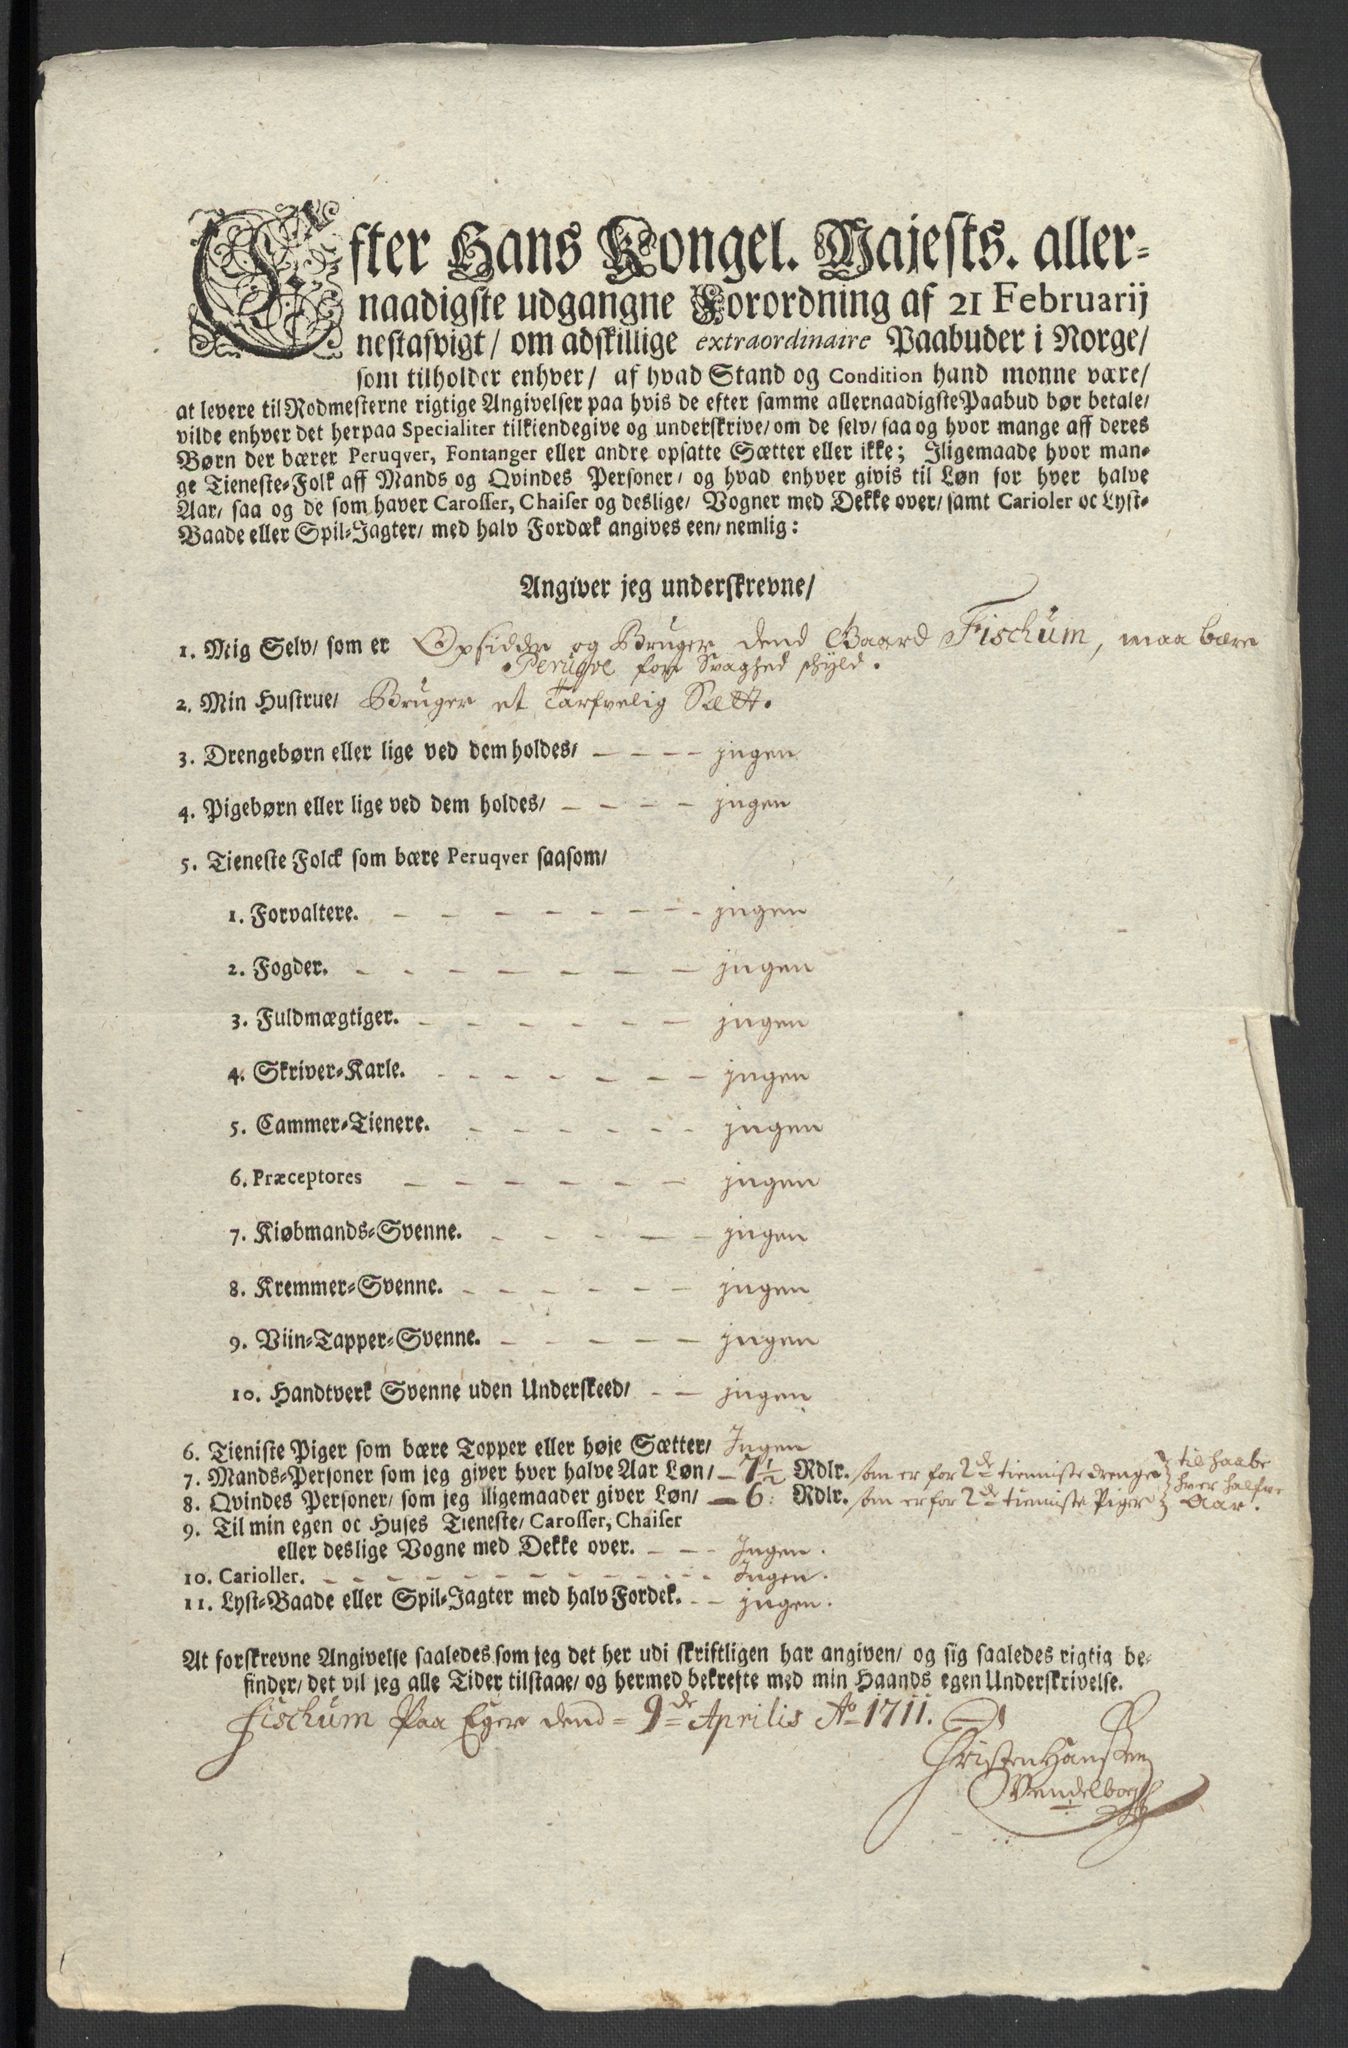 Efter Hans Kongel. Majests. aller-
naadigste udgangne Forordning af 21 Februarij
nestafvigt/ om adskillige extraordinaire Paabuder i Norge/
som tilholder enhver/ af hvad Stand og Condition hand monne være/
at levere til Rodmesterne rigtige Angivelser paa hvis de efter samme allernaadigste Paabud bør betale/
vilde enhver det herpaa Specialiter tilkiendegive og underskrive/ om de selv/ saa og hvor mange aff deres
Børn der bærer Peruqver, Fontanger eller andre opsatte Sætter eller ikke; Iligemaade hvor man-
ge Tieneste-Folk aff Mands og Qvindes Personer/ og hvad enhver givis til Løn for hver halve
Aar/ saa og de som haver Carosser, Chaiser og deslige/ Vogner med Dekke over/ samt Carioler oc Lyst-
Baade eller Spil-Jagter/ med halv Fordæk angives een/ nemlig:
Angiver jeg underskrevne/
1. Mig Selv/ som er Opsidder og Bruger dend Gaard Fischum, maa bære
Peruqve for Svaghed schyld.
2. Min Hustrue/ Bruger et Tarfvelig Sætt.
3. Drengebørn eller lige ved dem holdes/ - - - - jngen
4. Pigebørn eller lige ved dem holdes/ - - - - jngen
5. Tieneste Folck som bære Peruqver saasom/
1. Forvaltere. - - - - - - - - jngen
2. Fogder. - - - - - - - jngen
3. Fuldmægtiger. - - - - - - jngen
4. Skriver-Karle. - - - - - - - jngen
5. Cammer-Tienere. - - - - - - jngen
6. Præceptores - - - - - - jngen
7. Kiøbmands-Svenne. - - - - - jngen
8. Kremmer-Svenne. - - - - - - jngen
9. Viin-Tapper-Svenne. - - - - - jngen
10. Handtverk Svenne uden Underskeed/ - - jngen
6. Tieniste Piger som bære Topper eller høje Sætter/ Ingen
7. Mands-Personer som jeg giver hver halve Aar Løn/ - 7 1/2 Rdlr. som er for 2de tienniste drenge til haabe
8. Qvindes Personer/ som jeg iligemaader giver Løn/ - 6: Rdlr. som er for 2de tienniste Piger hver halfve Aar.
9. Til min egen oc Huses Tieneste/ Carosser, Chaiser
eller deslige Vogne med Dekke over. - - - Ingen.
10. Carioller. - - - - - - - - - - Ingen.
11. Lyst-Baade eller Spil-Jagter med halv Fordek. - - jngen.
At forskrevne Angivelse saaledes som jeg det her udi skriftligen har angiven/ og sig saaledes rigtig be-
finder/ det vil jeg alle Tider tilstaae/ og hermed bekrefte med min Haands egen Underskrivelse.
Fischum Paa Eger dend 9de Aprilis Ao 1711.
Christen Hanssen
Vendelboe